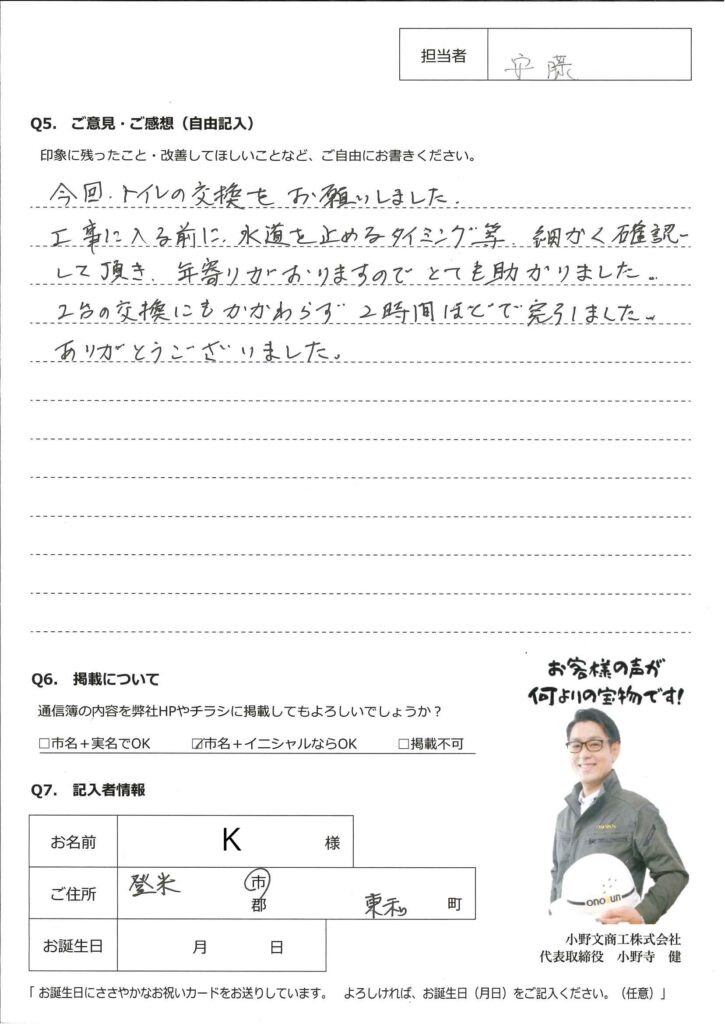 担当者 安藤
Q5. ご意見・ご感想（自由記入）
印象に残ったこと・改善してほしいことなど、ご自由にお書きください。
今回、トイレの交換をお願いしました。
工事に入る前に、水道を止めるタイミング等、細かく確認
して頂き、年寄りがおりますのでとても助かりました。
2台の交換にもかかわらず2時間ほどで完了しました。
ありがとうございました。
Q6. 掲載について
通信簿の内容を弊社HPやチラシに掲載してもよろしいでしょうか？
□市名＋実名でOK ☑市名＋イニシャルならOK □掲載不可
お客様の声が
何よりの宝物です!
Q7. 記入者情報
お名前 K 様
ご住所 登米 市 郡 東和 町
お誕生日 月 日
onobun
小野文商工株式会社
代表取締役 小野寺 健
「 お誕生日にささやかなお祝いカードをお送りしています。 よろしければ、お誕生日（月日）をご記入ください。（任意）」